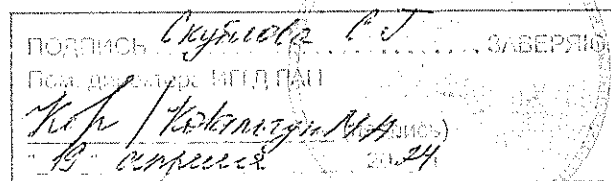 ПОДПИСЬ Скублова С Г ЗАВЕРЯЮ
Пом. директора ИГГД РАН
(подпись)
" 19 " апреля 2024